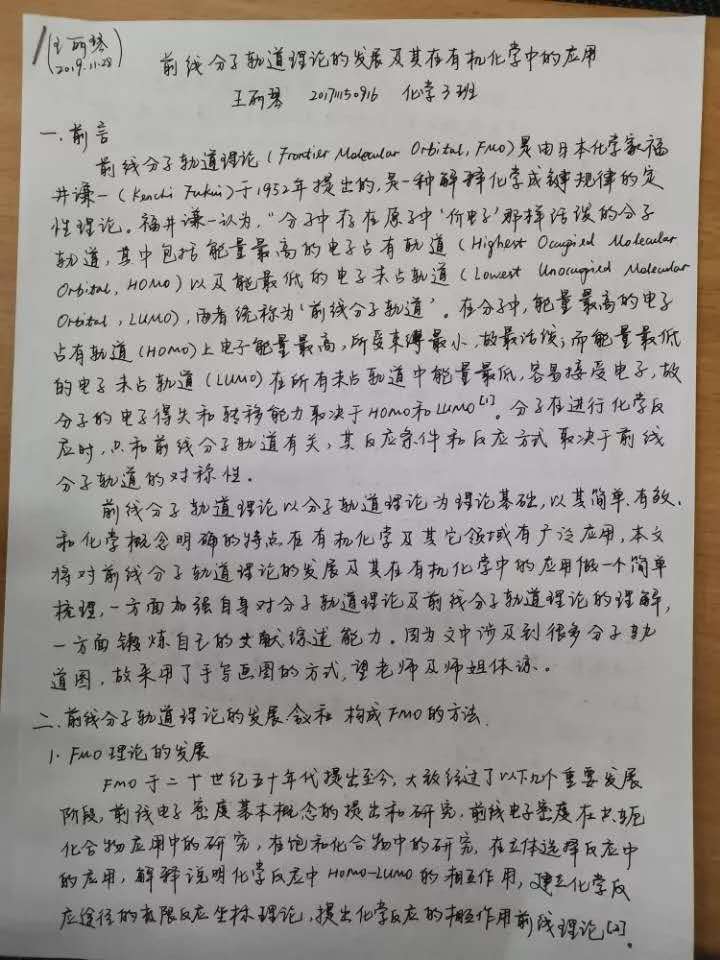 (王丽琴)
2019.11.28
前线分子轨道理论的发展及其在有机化学中的应用
王丽琴 20171150916 化学3班
一.前言
前线分子轨道理论(Frontier Molecular Orbital, FMO)是由日本化学家福
井谦一(Kenchi Fukui)于1952年提出的,是一种解释化学成键规律的定
性理论。福井谦一认为,"分子中存在原子中'价电子'那样活泼的分子
轨道,其中包括能量最高的电子占有轨道(Highest Ocupied Molecular
Orbital, HOMO)以及能最低的电子未占轨道(Lowest Unocupied Molecular
Orbital, LUMO),两者统称为'前线分子轨道'。在分子中,能量最高的电子
占有轨道(HOMO)上电子能量最高,所受束缚最小,故最活泼;而能量最低
的电子未占轨道(LUMO)在所有未占轨道中能量最低,容易接受电子,故
分子的电子得失和转移能力取决于HOMO和LUMO[1]。分子在进行化学反
应时,只和前线分子轨道有关,其反应条件和反应方式取决于前线
分子轨道的对称性。
前线分子轨道理论以分子轨道理论为理论基础,以其简单、有效、
和化学概念明确的特点在有机化学及其它领域有广泛应用,本文
将对前线分子轨道理论的发展及其在有机化学中的应用做一个简单
梳理,一方面加强自身对分子轨道理论及前线分子轨道理论的理解,
一方面锻炼自己的文献综述能力。因为文中涉及到很多分子轨
道图,故采用了手写画图的方式,望老师及师姐体谅。
二.前线分子轨道理论的发展 和 构成FMO的方法
1. FMO理论的发展
FMO于二十世纪五十年代提出至今,大致经过了以下几个重要发展
阶段,前线电子密度基本概念的提出和研究,前线电子密度在共轭
化合物应用中的研究,在饱和化合物中的研究,在立体选择反应中
的应用,解释说明化学反应中HOMO-LUMO的相互作用,建立化学反
应途径的极限反应坐标理论,提出化学反应的相互作用前线理论[2]。